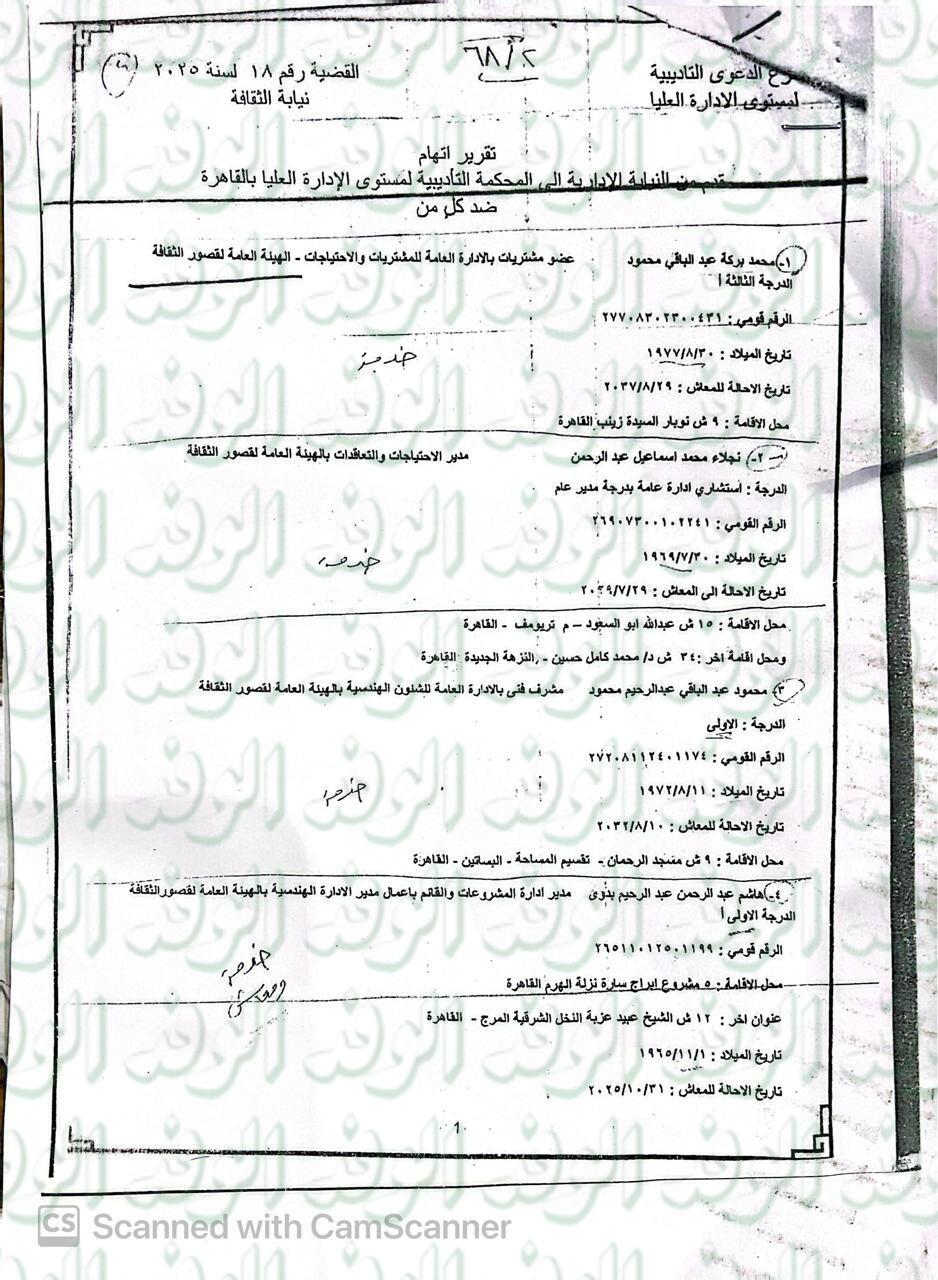 ٦٨/٢
فرع الدعوى التاديبية
لمستوى الادارة العليا
القضية رقم ١٨ لسنة ٢٠٢٥
نيابة الثقافة
تقرير اتهام
من النيابة الإدارية الى المحكمة التأديبية لمستوى الإدارة العليا بالقاهرة
ضد كل من
١- محمد بركة عبد الباقي محمود عضو مشتريات بالادارة العامة للمشتريات والاحتياجات - الهيئة العامة لقصور الثقافة
الدرجة الثالثة أ
الرقم قومي : ٢٧٧٠٨٣٠٢٣٠٠٤٣١
تاريخ الميلاد : ١٩٧٧/٨/٣٠
خدمة
تاريخ الاحالة للمعاش : ٢٠٣٧/٨/٢٩
محل الاقامة : ٩ ش نوبار السيدة زينب القاهرة
٢- نجلاء محمد اسماعيل عبد الرحمن مدير الاحتياجات والتعاقدات بالهيئة العامة لقصور الثقافة
الدرجة : استشاري ادارة عامة بدرجة مدير عام
الرقم القومي : ٢٦٩٠٧٣٠٠١٠٢٢٤١
تاريخ الميلاد : ١٩٦٩/٧/٣٠
خدمة
تاريخ الاحالة الى المعاش : ٢٠٢٩/٧/٢٩
محل الاقامة : ١٥ ش عبدالله ابو السعود – م تريومف - القاهرة
ومحل اقامة اخر : ٣٤ ش د/ محمد كامل حسين - النزهة الجديدة القاهرة
٣- محمود عبد الباقي عبدالرحيم محمود مشرف فنى بالادارة العامة للشئون الهندسية بالهيئة العامة لقصور الثقافة
الدرجة : الاولى
الرقم القومي : ٢٧٢٠٨١١٢٤٠١١٧٤
تاريخ الميلاد : ١٩٧٢/٨/١١
خدمة
تاريخ الاحالة للمعاش : ٢٠٣٢/٨/١٠
محل الاقامة : ٩ ش مسجد الرحمان - تقسيم المساحة - البساتين - القاهرة
٤- هاشم عبد الرحمن عبد الرحيم بدوى مدير ادارة المشروعات والقائم باعمال مدير الادارة الهندسية بالهيئة العامة لقصورالثقافة
الدرجة الاولى أ
الرقم قومي : ٢٦٥١١٠١٢٥٠١١٩٩
خدمة
محل الاقامة : ٥ مشروع ابراج سارة نزلة الهرم القاهرة
عنوان اخر : ١٢ ش الشيخ عبيد عزبة النخل الشرقية المرج - القاهرة
تاريخ الميلاد : ١٩٦٥/١١/١
تاريخ الاحالة للمعاش : ٢٠٢٥/١٠/٣١
1
الوفد
CS Scanned with CamScanner